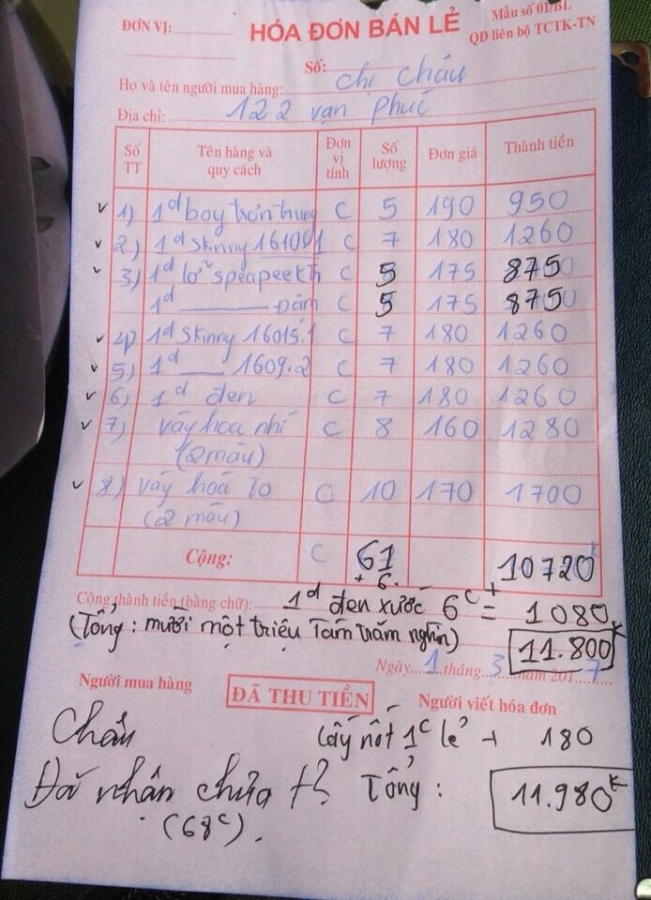 ĐƠN VỊ:
HÓA ĐƠN BÁN LẺ
Mẫu số 01/BL
QĐ liên bộ TCTK-TN
Số:
Họ và tên người mua hàng: Chị Châu
Địa chỉ: 122 vạn phúc
Số TT Tên hàng và quy cách Đơn vị tính Số lượng Đơn giá Thành tiền
1) 1đ boy trơn trung C 5 190 950
2) 1đ skinny 161001 C 7 180 1260
3) 1đ lở C 5 175 8750
1đ —— C 5 175 8750
4) 1đ skinny 16015.1 C 7 180 1260
5) 1đ —— 1609.2 C 7 180 1260
6) 1đ đen C 7 180 1260
7) váy hoa nhí C 8 160 1280
(2 màu)
8) váy hoa to C 10 170 1700
(2 màu)
Cộng: C 61 10720k
+ 6.
Cộng thành tiền (bằng chữ): 1đ đen xước 6c + = 1080k
(Tổng: mười một triệu Tám trăm nghìn) 11.800k
Ngày 1 tháng 3 năm 2017
Người mua hàng ĐÃ THU TIỀN Người viết hóa đơn
Châu lấy nốt 1c lẻ + 180
Đã nhận chưa t? Tổng: 11.980k
(68c).